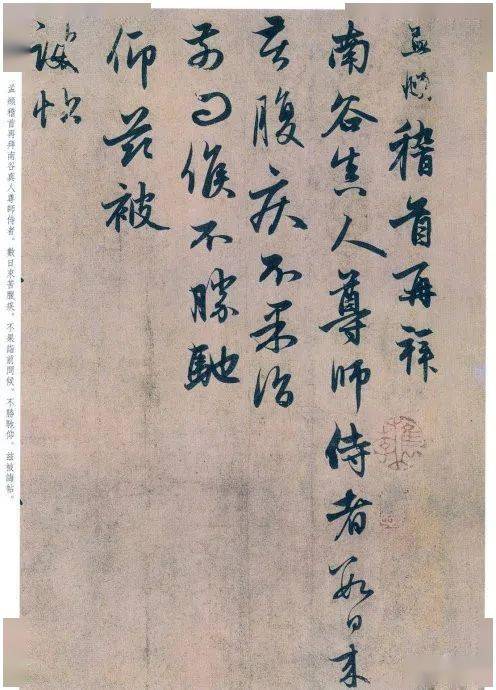 孟頫稽首再拜
南谷真人尊師侍者數日來
苦腹疾不果詣
前問候不勝馳
仰茲被
誨帖
孟頫稽首再拜南谷真人尊師侍者。數日來苦腹疾，不果詣前問候，不勝馳仰。茲被誨帖。